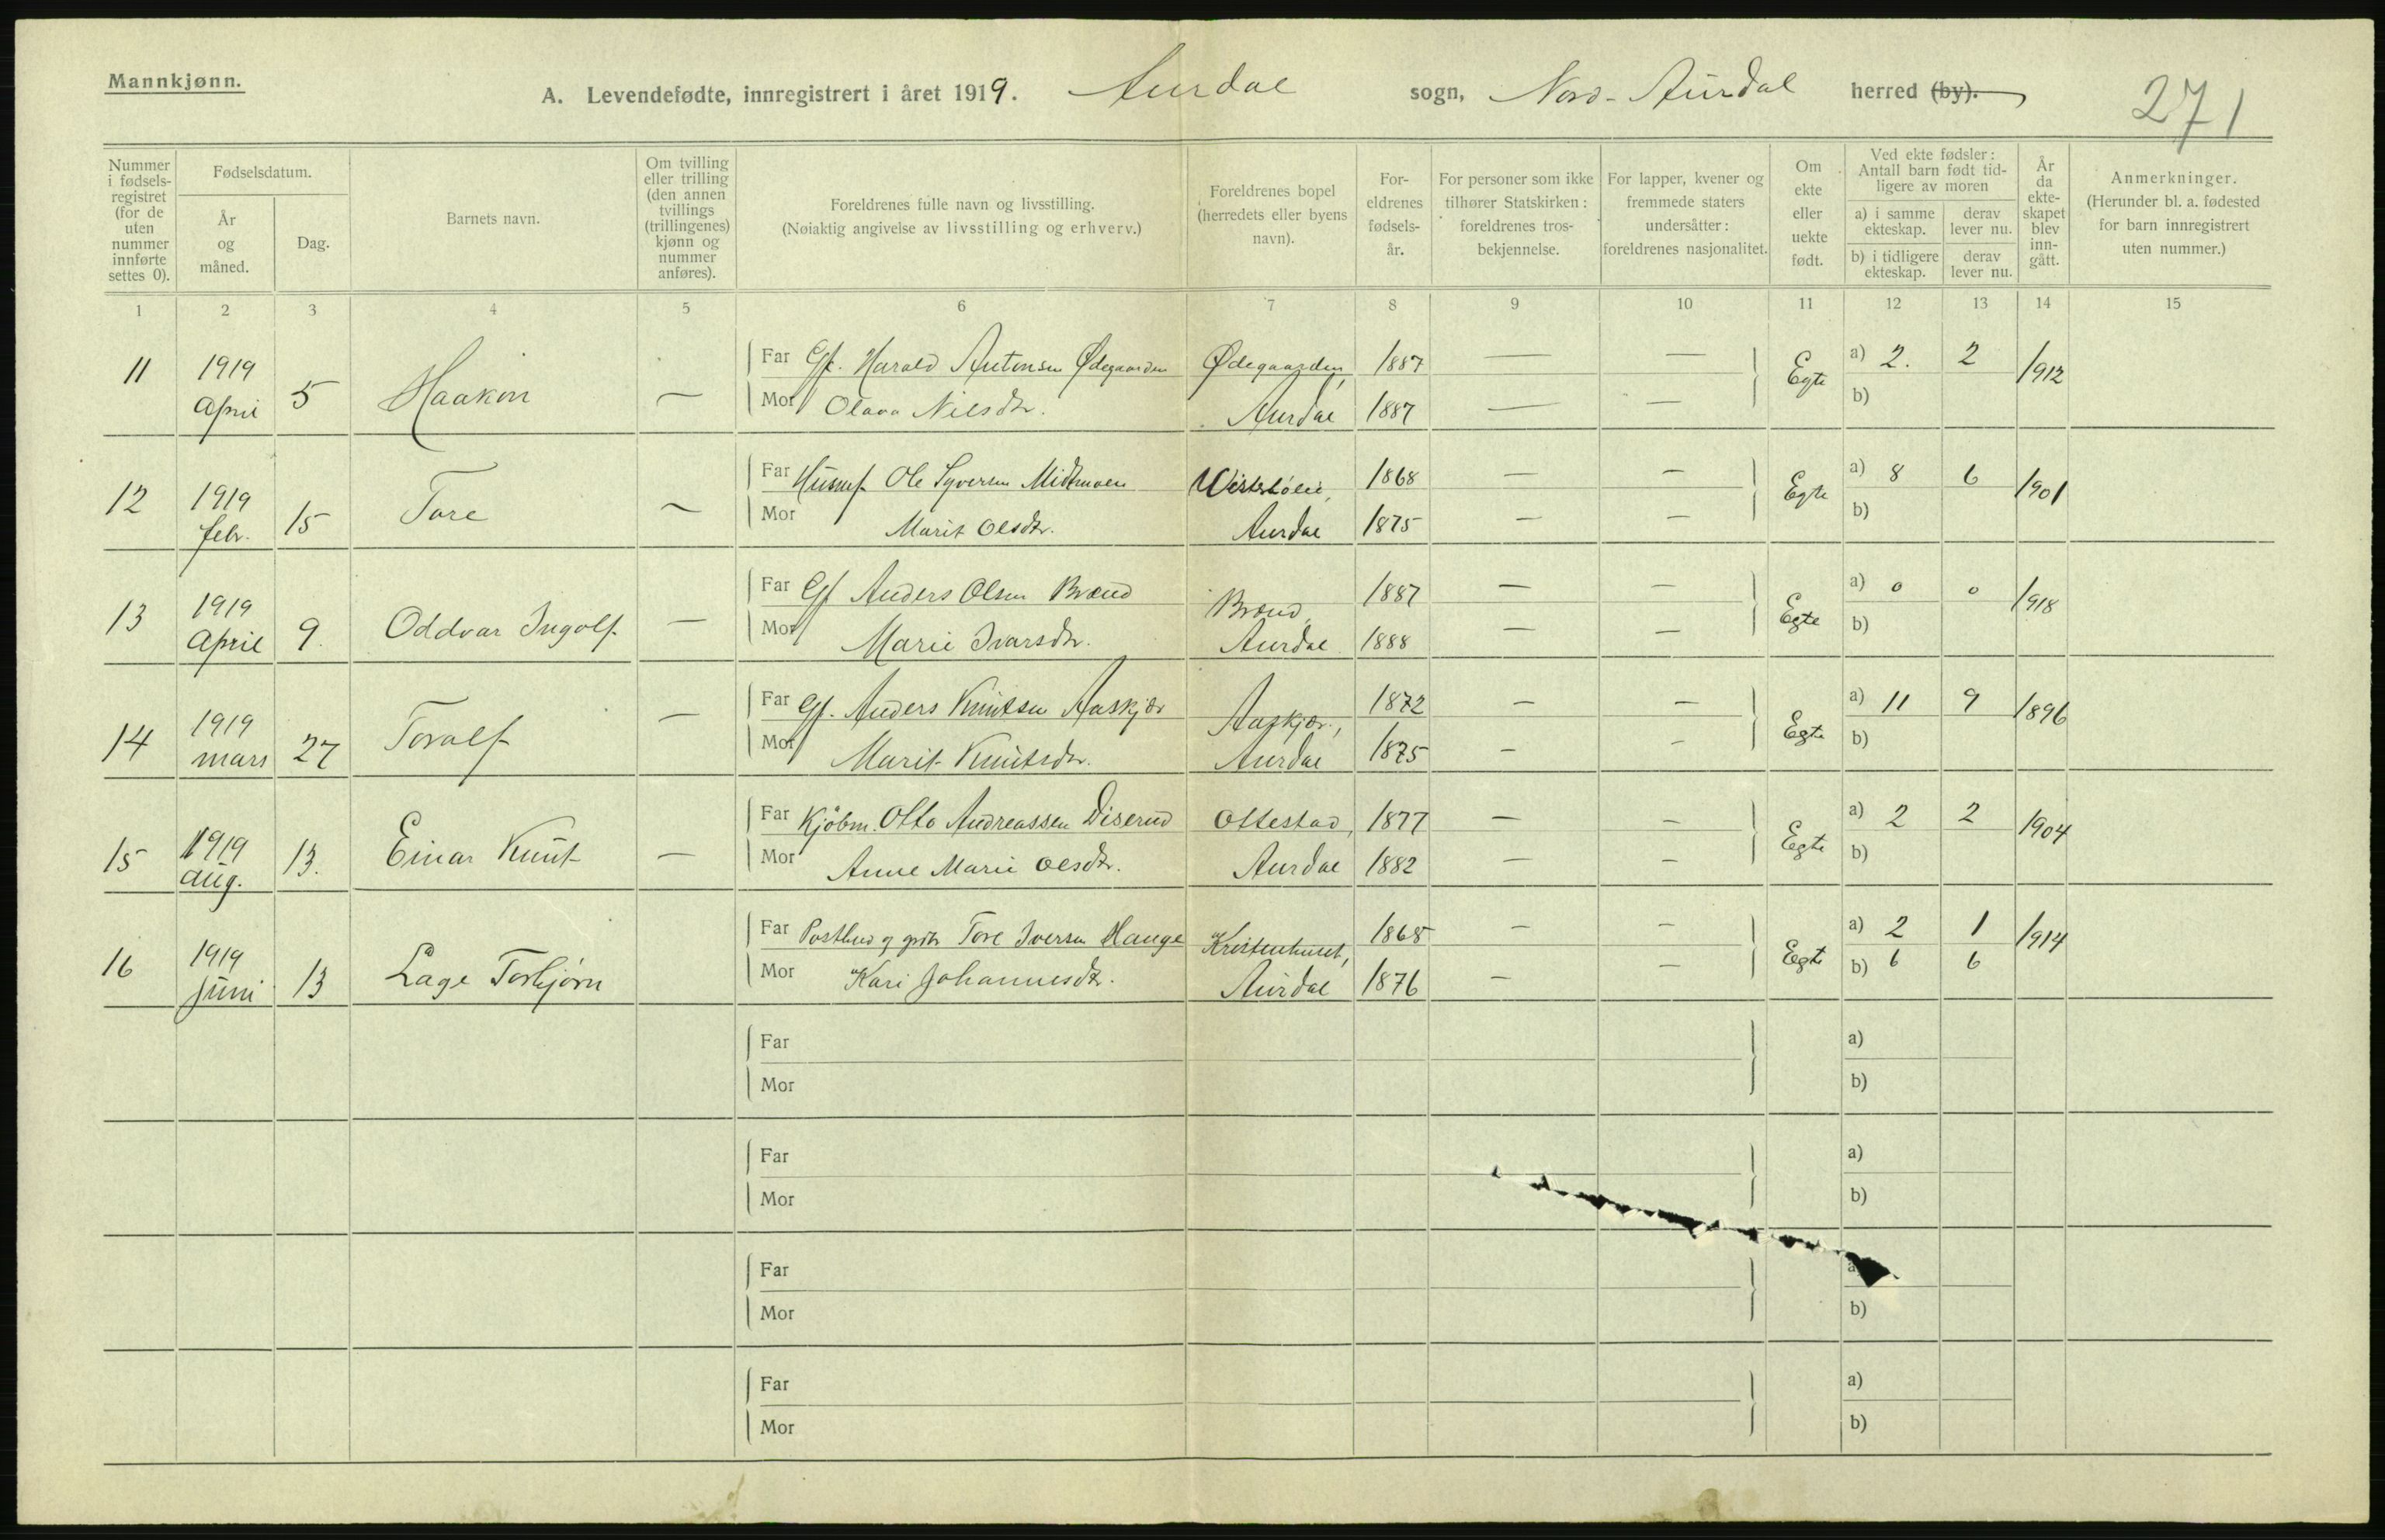 Mannkjønn.
A. Levendefødte, innregistrert i året 1919. Aurdal sogn, Nord-Aurdal herred (by).
271
Nummer i fødsels-registret (for de uten nummer innførte settes 0).
Fødselsdatum.
År og måned.
Dag.
Barnets navn.
Om tvilling eller trilling (den annen tvillings (trillingenes) kjønn og nummer anføres).
Foreldrenes fulle navn og livsstilling. (Nøiaktig angivelse av livsstilling og erhverv.)
Foreldrenes bopel (herredets eller byens navn).
For-eldrenes fødsels-år.
For personer som ikke tilhører Statskirken: foreldrenes tros-bekjennelse.
For lapper, kvener og fremmede staters undersåtter: foreldrenes nasjonalitet.
Om ekte eller uekte født.
Ved ekte fødsler: Antall barn født tid-ligere av moren
a) i samme ekteskap. derav lever nu.
b) i tidligere ekteskap. derav lever nu.
År da ekte-skapet blev inn-gått.
Anmerkninger. (Herunder bl. a. fødested for barn innregistrert uten nummer.)
1 2 3 4 5 6 7 8 9 10 11 12 13 14 15
11 1919 April 5 Haakon — Far Gf. Harald Antonsen Ødegaarden Ødegaarden, 1887 — — Egte a) 2. 2 1912
Mor Olava Nilsdtr. Aurdal 1887 — — b)
12 1919 febr. 15 Tore — Far Husmf. Ole Syversen Midtmoen Aurdal 1868 — — Egte a) 8 6 1901
Mor Marit Olsdtr. 1875 — — b)
13 1919 April 9. Oddvar Ingolf — Far Gf Anders Olsen Brænd Brænd, 1887 — — Egte a) 0 0 1918
Mor Marie Ivarsdtr. Aurdal 1888 — — b)
14 1919 mars 27 Toralf — Far Gf. Anders Knutsen Aaskjær Aaskjær, 1872 — — Egte a) 11 9 1896
Mor Marit Knutsdtr. Aurdal 1875 — — b)
15 1919 aug. 13. Einar Knut — Far Kjøbm. Otto Andreassen Diserud Ottestad, 1877 — — Egte a) 2 2 1904
Mor Anne Marie Olsdtr. Aurdal 1882 — — b)
16 1919 juni 13 Lage Torbjørn Far Postbud og grdbr Tore Iversen Hauge Kristenhuset, 1868 — — Egte a) 2 1 1914
Mor Kari Johannesdtr. Aurdal 1876 — — b) 6 6
Far a)
Mor b)
Far a)
Mor b)
Far a
Mor b)
Far a)
Mor b)